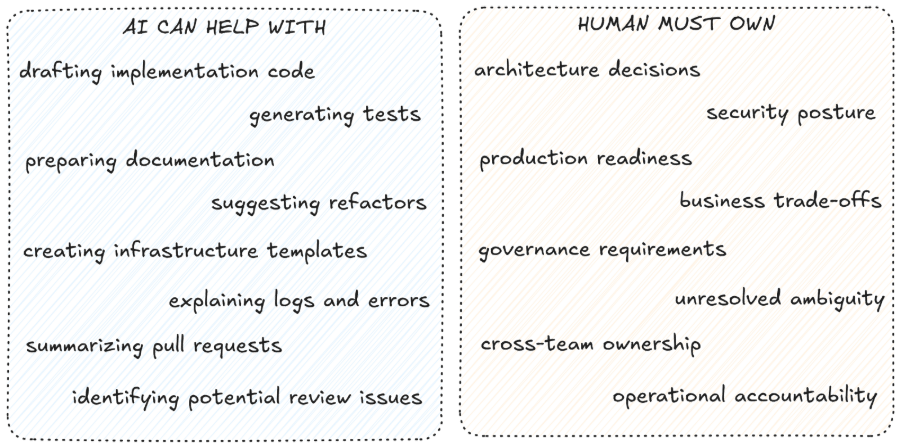 AI CAN HELP WITH
drafting implementation code
generating tests
preparing documentation
suggesting refactors
creating infrastructure templates
explaining logs and errors
summarizing pull requests
identifying potential review issues
HUMAN MUST OWN
architecture decisions
security posture
production readiness
business trade-offs
governance requirements
unresolved ambiguity
cross-team ownership
operational accountability